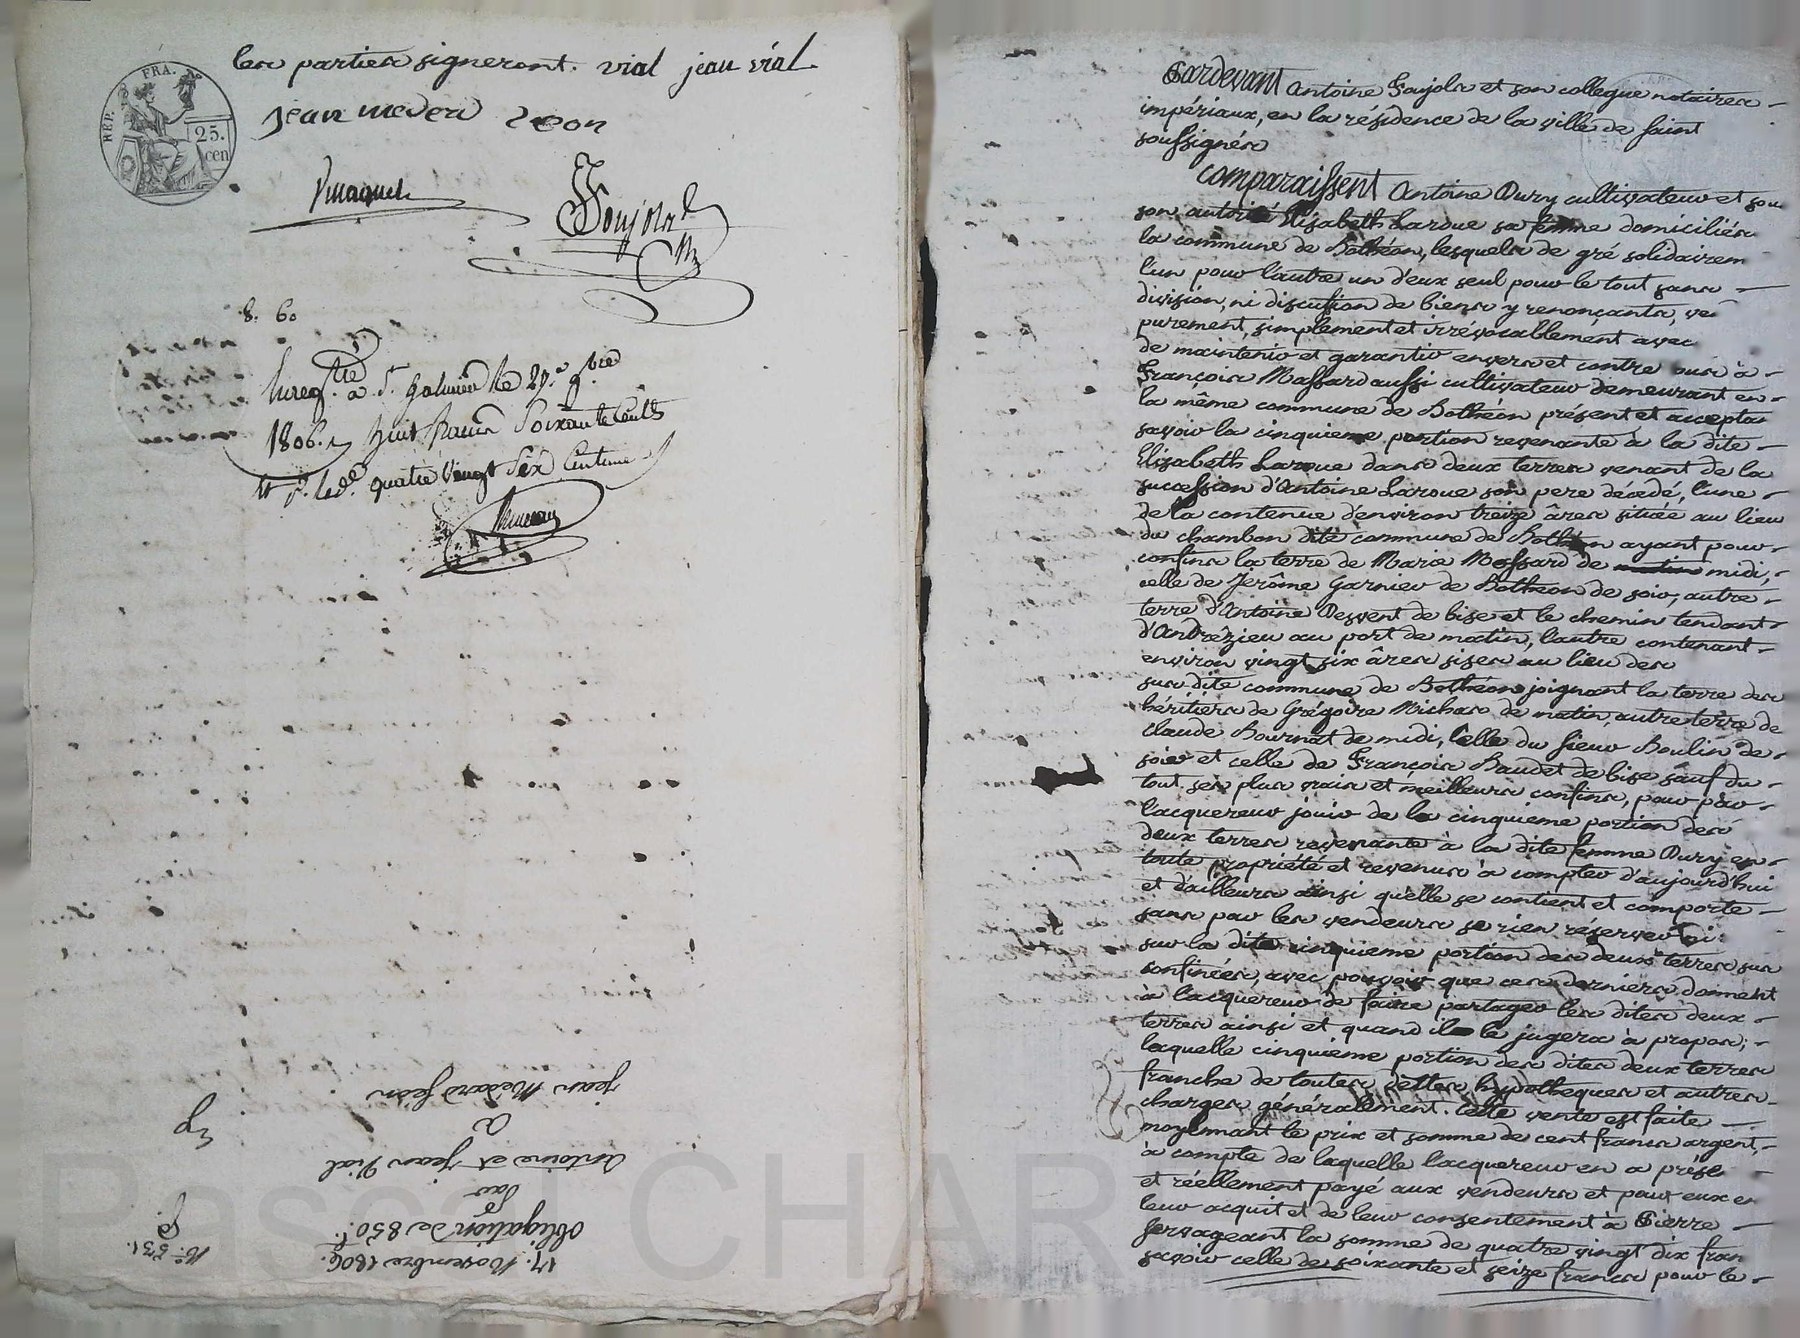 les parties signeront. vial jean vial
jean meder Jeon
REP. FRA.
25.
cen
Pmaguet
Soujols
8. 60
Enreg.tré à St. Galmier le 27.e 9.bre
1806. huit francs Soixante Cent.s
quatre Vingt Six Centime
17. Novembre 1806.
N.o 531.
obligation de 850 f.
par
antoine et jean Vial
a
jean Médard jeon
Pardevant Antoine Soujols et son collegue notaires
impériaux, en la résidence de la ville de saint
soussignés
Comparaissent Antoine Dury cultivateur et sous
son autorité Elisabeth Laroue sa femme domiciliés
la commune de Bothéon, lesquels de gré solidairem
l'un pour l'autre un d'eux seul pour le tout sans
division, ni discussion de biens y renonçants, ve
purement, simplement et irrévocablement avec
de maintenir et garantir envers et contre tous à
François Massard aussi cultivateur demeurant en
la même commune de Bothéon présent et accepta
savoir la cinquieme portion revenante à la dite
Elisabeth Laroue dans deux terres venant de la
succession d'Antoine Laroue son pere décédé, l'une
de la contenue d'environ treize âres située au lieu
du chambon dite commune de Bothéon ayant pour
confins la terre de Marie Massard de midi,
celle de Jerôme Garnier de Bothéon de soir, autre
terre d'Antoine Desvent de bise et le chemin tendant
d'Andrézieu au port de matin, l'autre contenant
environ vingt six âres sises au lieu des
susdite commune de Bothéon joignant la terre des
héritiers de Grégoire Michard de matin, autre terre de
Claude Bournat de midi, celle du sieur Boulin de
soir et celle de François Baudet de bise sauf du
tout ses plus vrais et meilleurs confins, pour par
l'acquereur jouir de la cinquieme portion des
deux terres revenante à la dite femme Dury en
toute propriété et revenus à compter d'aujourd'hui
et d'ailleurs ainsi qu'elle se contient et comporte
sans par les vendeurs se rien réserver ni
sur la dite cinquieme portion des deux terres sus
confinées, avec pouvoir que ces derniers donnent
à l'acquereur de faire partager les dites deux
terres ainsi et quand il le jugera à propos;
laquelle cinquieme portion des dites deux terres
franche de toutes dettes hypotheques et autres
charges généralement. Cette vente est faite
moyennant le prix et somme de cent francs argent,
à compte de laquelle l'acquereur en a prése
et réellement payé aux vendeurs et pour eux en
leur acquit et de leur consentement à Pierre
Servageant la somme de quatre vingt dix fran
savoir celle de soixante et seize francs pour le
Pascal CHAR